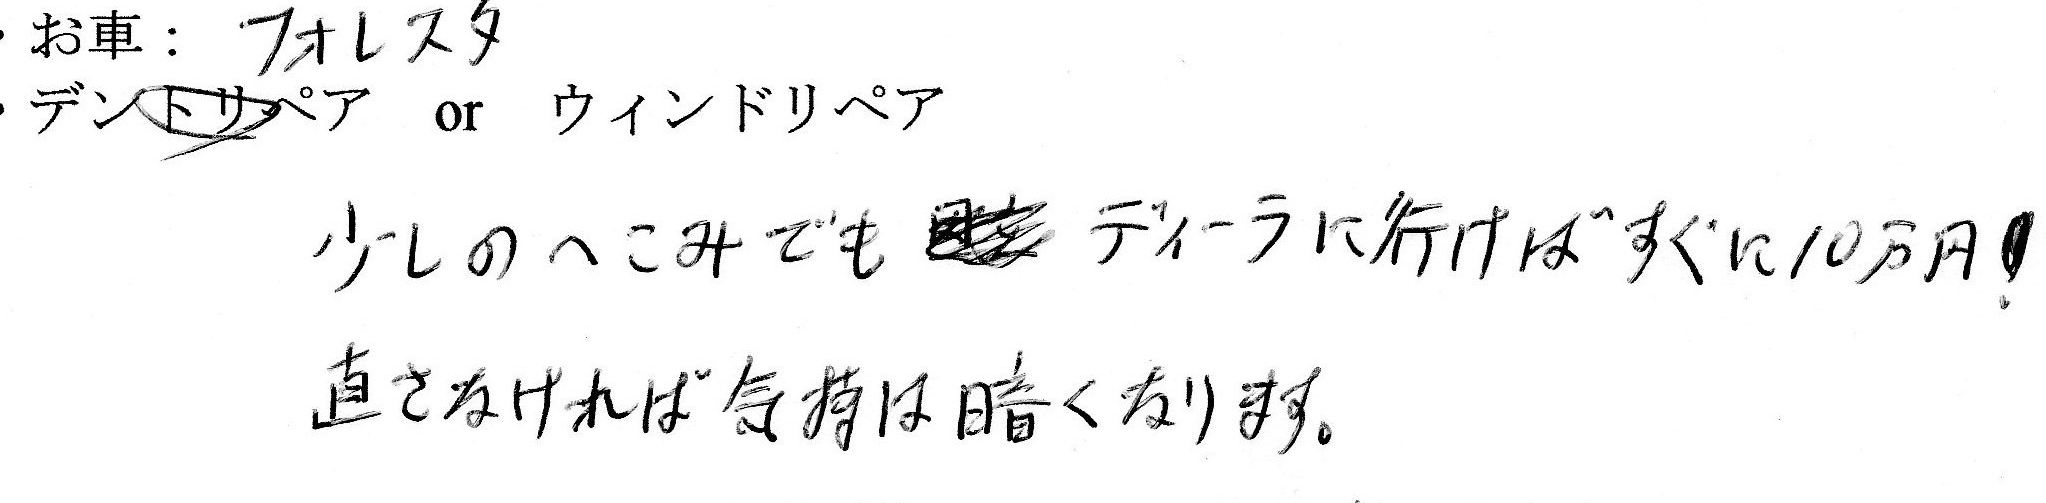 ・お車： フォレスタ
・デントリペア or ウィンドリペア
少しのへこみでも ディーラに行けばすぐに10万円！
直さなければ気持は暗くなります。